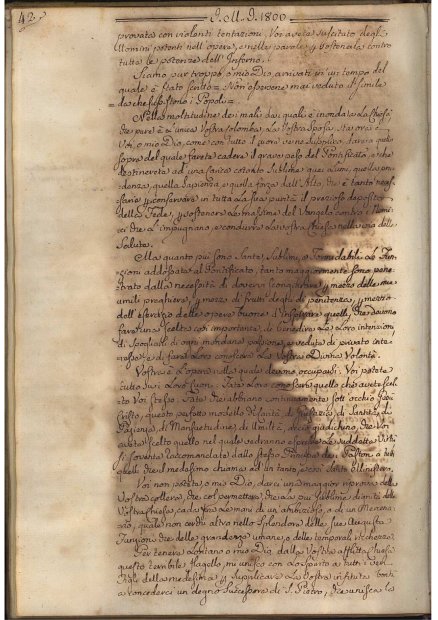 42.
I. M. I. 1800
provata con violenti tentazioni. Voi avete suscitato degli
Uomini potenti nell'opere, e nelle parole p sostenerla contro
tutte le potenze dell'Inferno.
Siamo pur troppo, o mio Dio, arrivati in un tempo del
quale è stato scritto = Non essersene mai veduto di simile
= da che esistono i Popoli =
Nella moltitudine dei mali, da' quali è inondata la Chiesa
che pure è l'unica Vostra Colomba, la Vostra Sposa
o mio Dio, come con tutto il cuore ve ne supplico,
sopra del quale farete cadere il grave peso del Pontificato, e che
destinerete ad una Carica cotanto Sublime quei lumi, quella pru-
denza, quella Sapienza, e quella forza dall'Alto, che è tanto neces-
saria p conservare in tutta la sua purità il prezioso deposito
della Fede, p sostenere le massime del Vangelo contro i Nemi-
ci che l'impugnano, e condurre la vostra Chiesa nella via della
Salute.
Ma quanto più sono Sante, Sublimi, e Formidabili le Fun-
zioni addossate al Pontificato, tanto maggiormente sono pene-
trato dalla necessità di dovervi scongiurare p mezzo delle mie
umili preghiere, p mezzo di frutti degni di penitenza, p mezzo
dell'esercizio delle opere buone d'inspirare quelli, che devono
fare una scelta così importante, di benedire le loro intenzioni
di spogliarli di ogni mondano rispetto, e veduta di privato inte-
resse, e di farli loro conoscere la Vostra Divina Volontà.
Vostra è l'opera, nella quale devono occuparsi. Voi potete
tutto sui loro Cuori. Fate loro conoscere quello che avete scel-
to Voi stesso. Fate che abbiano continuamente sott'occhio Gesù
Cristo, questo perfetto modello di Carità, di Giustizia, di Santità, di
Pazienza, di Mansuetudine, di Umiltà e, decidano, che Voi
avete scelto quello nel quale vedranno espresse le suddette Virtù
sì sovente raccomandate dallo stesso Principe dei Pastori a tutti
quelli che il medesimo chiama ad un tanto
Voi non potete, o mio Dio, darci una maggior riprova della
Vostra collera, che col permettere, che la più Sublime dignità della
Vostra Chiesa, cada fra le mani di un ambizioso, o di un Mercena-
rio, quale non cerchi altro nello splendore delle sue Auguste
Funzioni che delle grandezze umane, o delle temporali ricchezze
Per tenere lontano, o mio Dio, dalla Vostra afflitta Chiesa
questo terribile flagello, mi unisco con lo Spirito a tutti i veri
Figli della medesima p supplicare la Vostra infinita bontà
a concederci un degno Successore di S. Pietro, che unisca la